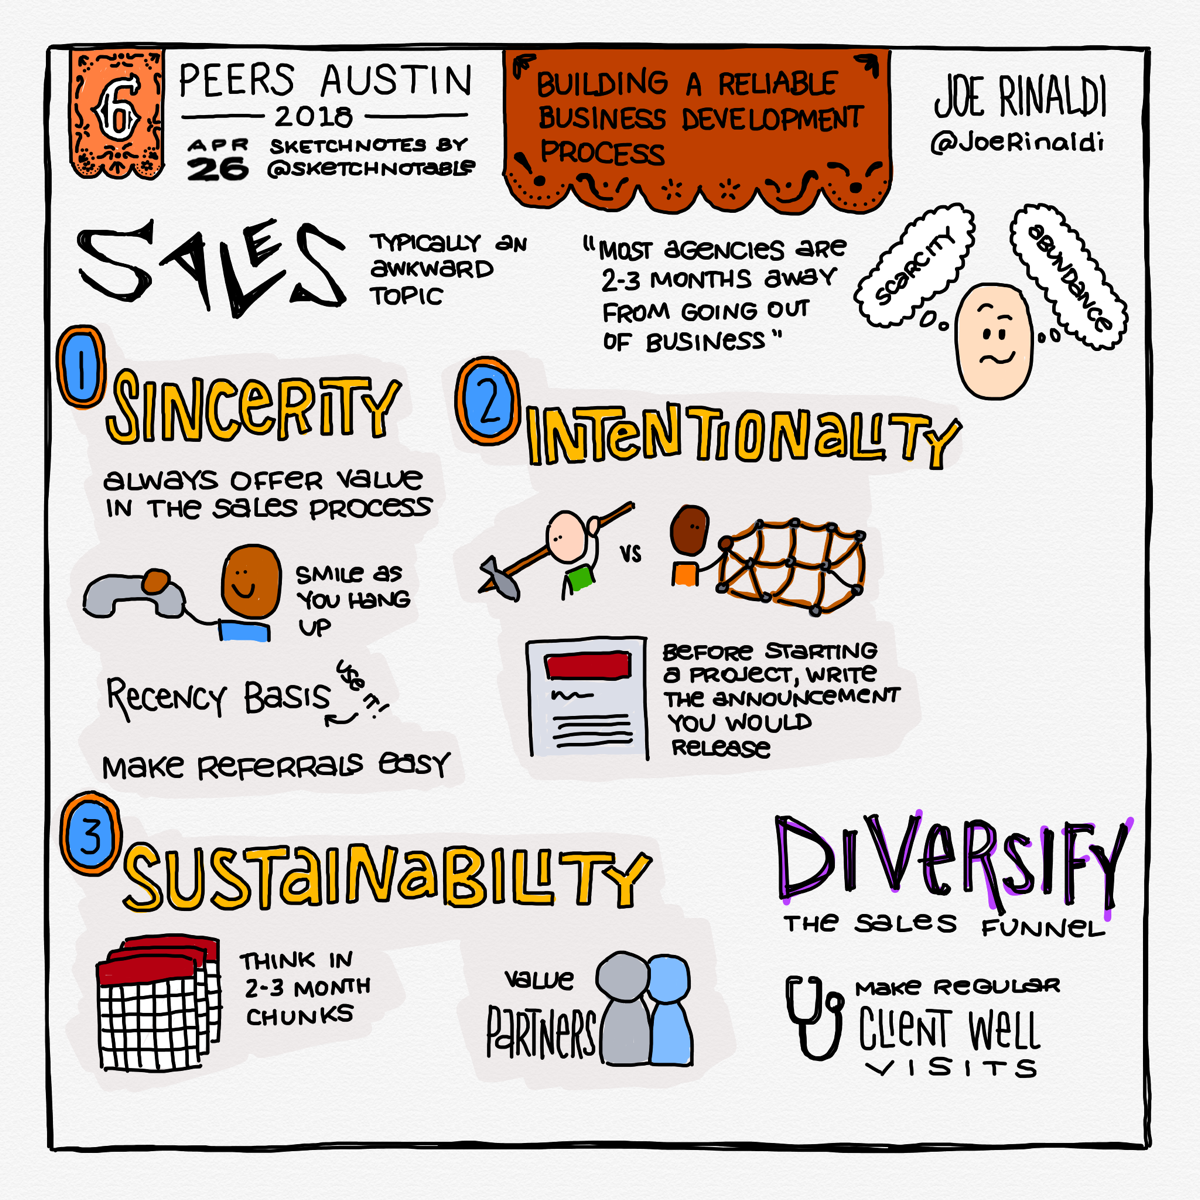 6
PEERS AUSTIN
2018
APR
26
SKETCHNOTES BY
@SKETCHNOTABLE
BUILDING A RELIABLE
BUSINESS DEVELOPMENT
PROCESS
JOE RINALDI
@JoeRinaldi
SALES
TYPICALLY AN
AWKWARD
TOPIC
"MOST AGENCIES ARE
2-3 MONTHS AWAY
FROM GOING OUT
OF BUSINESS"
SCARCITY
ABUNDANCE
1
SINCERITY
ALWAYS OFFER VALUE
IN THE SALES PROCESS
SMILE AS
YOU HANG
UP
RECENCY BASIS
USE IT!
MAKE REFERRALS EASY
2
INTENTIONALITY
VS
BEFORE STARTING
A PROJECT, WRITE
THE ANNOUNCEMENT
YOU WOULD
RELEASE
3
SUSTAINABILITY
THINK IN
2-3 MONTH
CHUNKS
VALUE
PARTNERS
DIVERSIFY
THE SALES FUNNEL
MAKE REGULAR
CLIENT WELL
VISITS